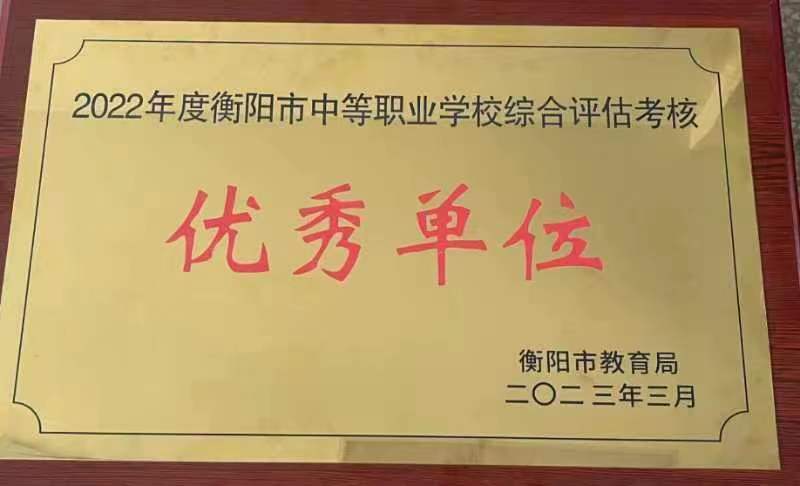 2022年度衡阳市中等职业学校综合评估考核
优秀单位
衡阳市教育局
二〇二三年三月